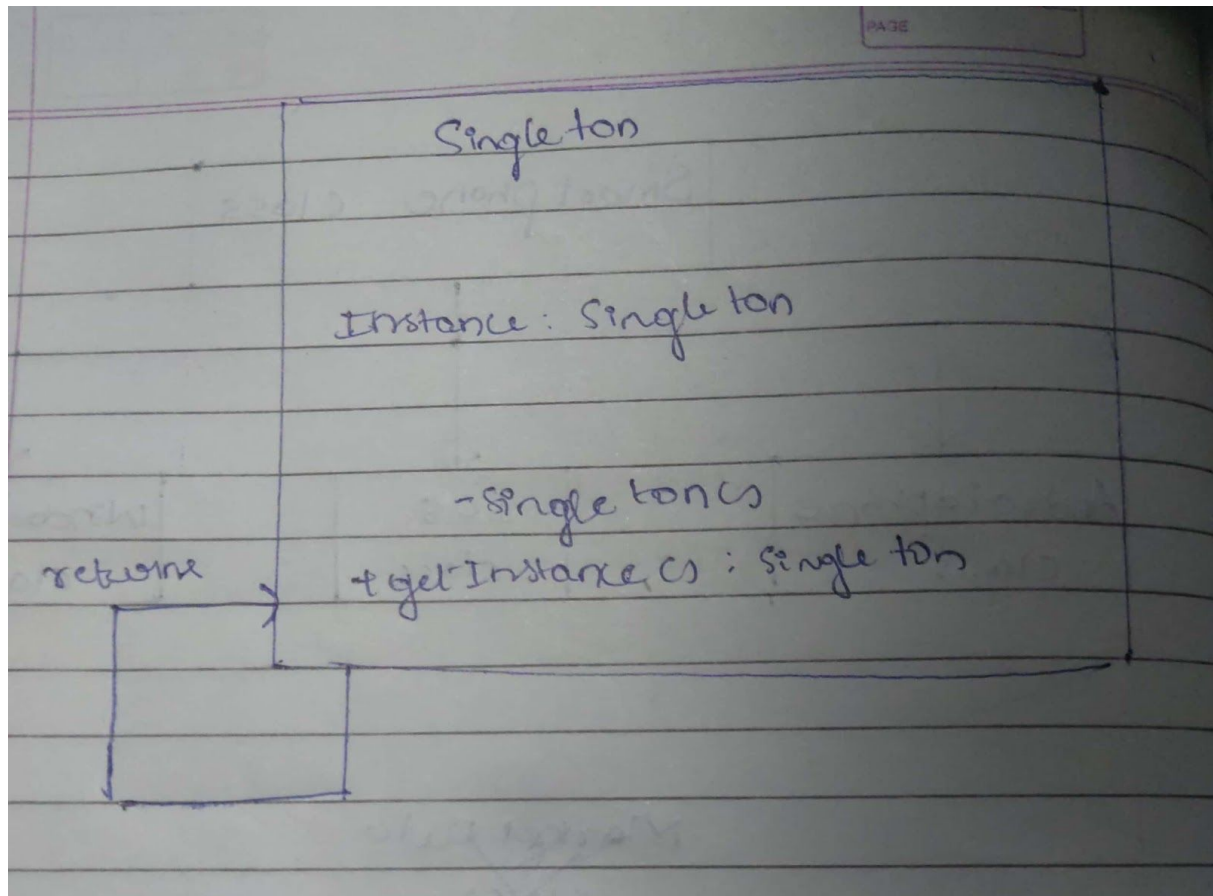 PAGE
Singleton
Instance : Singleton
-Singleton()
returns
+getInstance() : Singleton